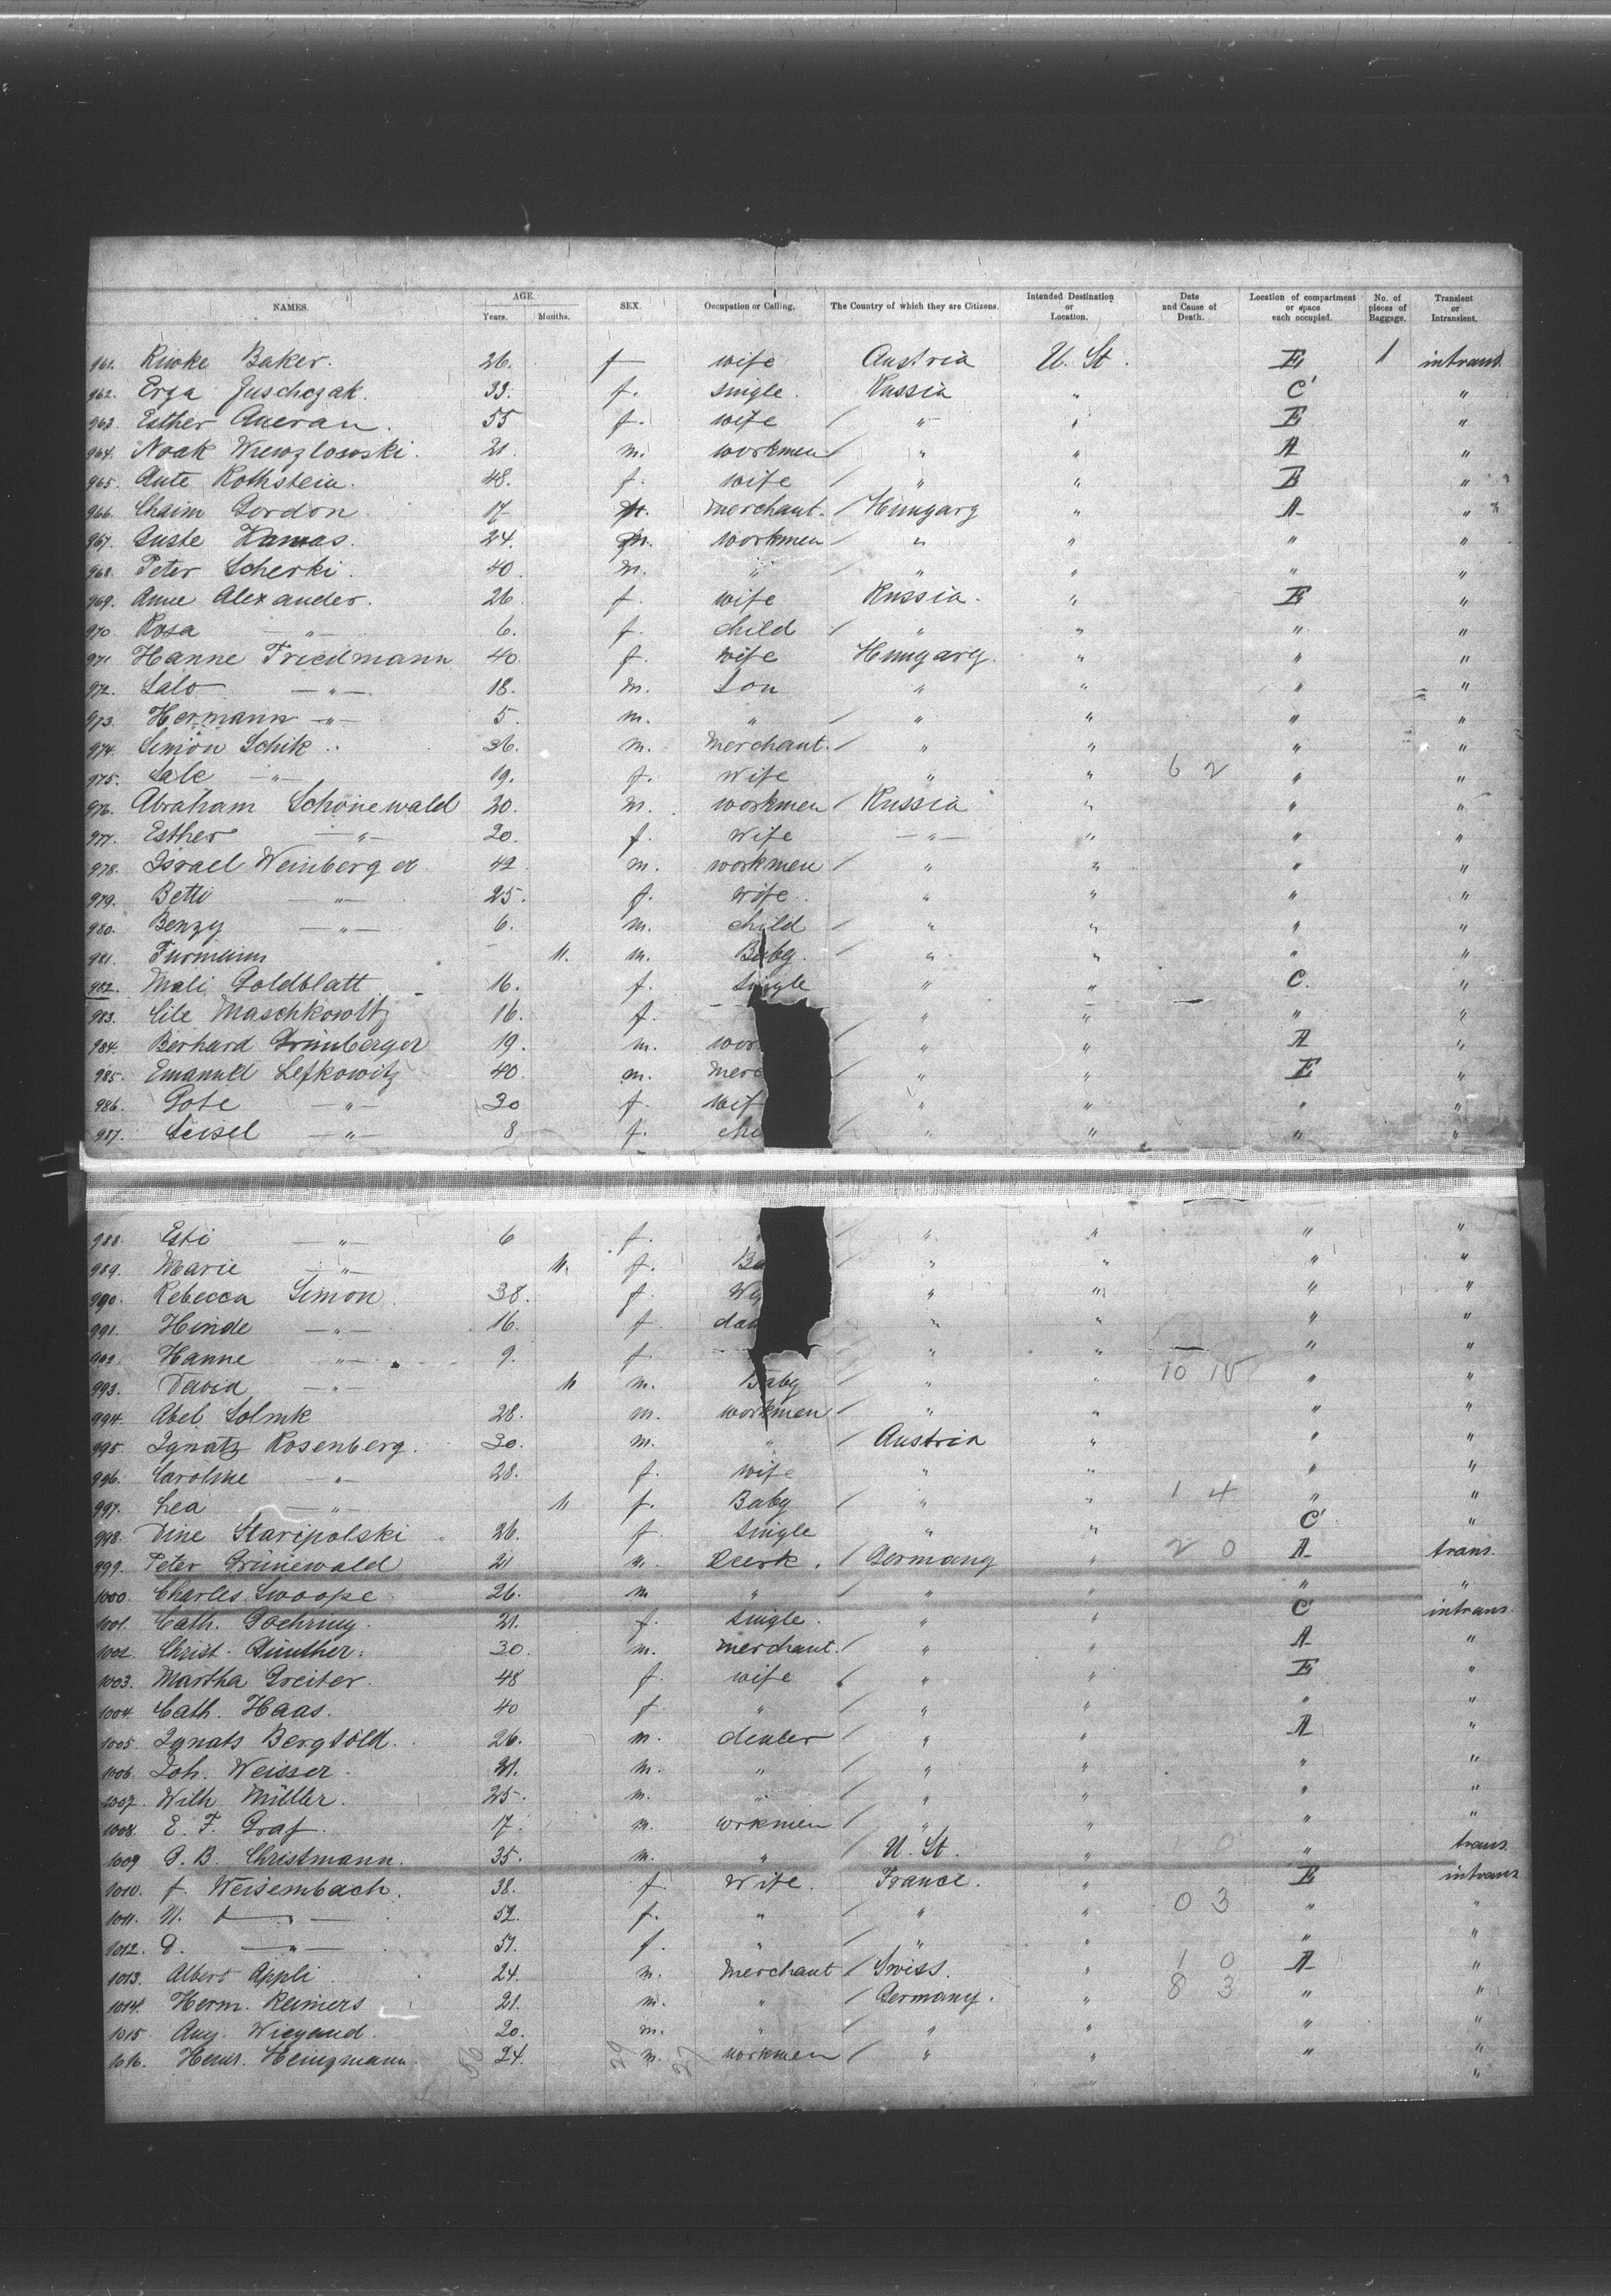 NAMES. AGE. Years. Months. SEX. Occupation or Calling. The Country of which they are Citizens. Intended Destination or Location. Date and Cause of Death. Location of compartment or space each occupied. No. of pieces of Baggage. Transient or Intransient.
961. Riwke Baker. 26. f wife Austria U. St. E 1 intrans.
962. Erga Juschczak. 33. f. single. Russia " C "
963. Esther Aueran. 55 f. wife / " " E "
964. Noak Wrenzlowski. 21. m. workmen / " " A "
965. Aute Rothstein. 48. f. wife / " " E "
966. Chaim Gordon. 17 m. merchant. / Hungary " A "
967. Guste Kamas. 24. m. workmen " " " "
968. Peter Scherki. 40. m. " " " " "
969. Anne Alexander. 26 f. wife Russia. " E "
970. Rosa —"— 6. f. child / " " " "
971. Hanne Friedmann 40. f. wife Hungary. " " "
972. Salo —"— 18. m. Son " " " "
973. Hermann —"— 5. m. " / " " " "
974. Simon Schik 36. m. merchant. / " " " "
975. Sale —"— 19. f. wife " " 6 2 " "
976. Abraham Schönewald 20. m. workmen / Russia " " "
977. Esther —"— 20. f. wife —"— " " "
978. Israel Weinberger 42 m. workmen / " " " "
979. Betti —"— 25. f. wife. " " " "
980. Benzy —"— 6. m. child / " " " "
981. 11. m. Baby. / " " " "
982. Mali Goldblatt 16. f. single " " C. "
983. Cile Maschkowitz 16. f. " " " "
984. Berhard Grünberger 19. m. wor / " " A "
985. Emanuel Lefkowitz 40. m. merc / " " E "
986. Gote —"— 30 f. wif " " " "
987. Leisel —"— 8 f. chi / " " " "
988. Esti —"— 6 f. / " " " "
989. Marie —"— 11. f. Ba " " " "
990. Rebecca Simon. 38. f. W " " " "
991. Hinde —"— 16. f. dau " " " "
992. Hanne —"— 9. f. " " " "
993. David —"— 11 m. Baby / " " 10 15 " "
994. Abel Solnik 28. m. workmen / " " " "
995. Ignatz Rosenberg. 30. m. " / Austria " " "
996. Caroline —"— 28. f. wife " " " "
997. Lea —"— 11 f. Baby / " " 1 4 " "
998. Dine Staripolski 26. f. single " " C "
999. Peter Grünewald 21 m. Clerk. / Germany " 2 0 A trans.
1000. Charles Swoope 26. m " / " " " "
1001. Cath. Goehring. 21. f. single. " " C intrans.
1002. Christ. Günther. 30. m. merchant. / " " A "
1003. Martha Greiter. 48 f. wife / " " E "
1004. Cath. Haas. 40 f " / " " " "
1005. Ignats Bergtöld. 26. m. dealer / " " A "
1006. Joh. Weisser. 21. m. " / " " " "
1007. Wilh Müller. 25. m. " / " " " "
1008. E. F. Graf. 17. m. workmen / " " " "
1009 G. B. Christmann. 35. m. " / U. St. " " trans.
1010. f. Weisembach. 38. f Wife. France. " E intrans
1011. N. —"— 52. f. " / " " 0 3 " "
1012. G. —"— 51. f. " / " " " "
1013. Albert Appli 24. m. merchant / Swiss. " 1 0 A "
1014. Herm. Reiners 21. m. " / Germany. " 8 3 " "
1015. Aug. Wiegand. 20. m. " / " " " "
1016. Heinr. Heingmann. 56 24. 29 m. 27 workmen / " " " "
"